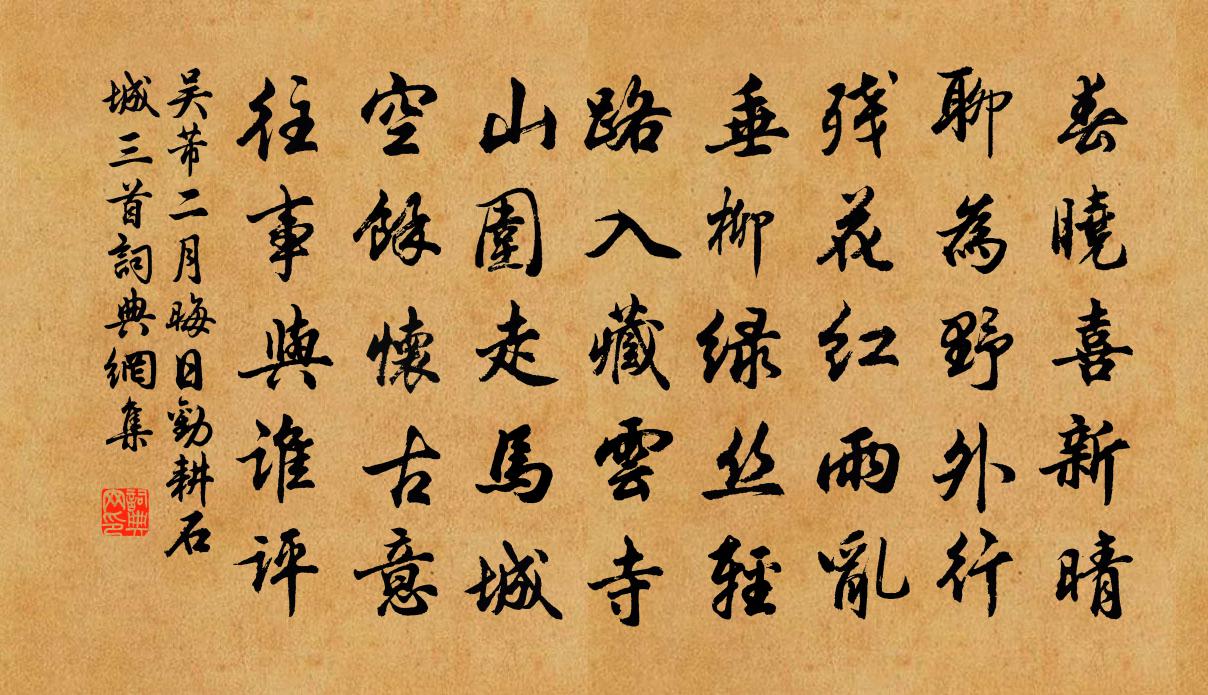 春曉喜新晴
聊為野外行
殘花紅雨亂
垂柳綠丝輕
路入藏雲寺
山圍走馬城
空餘懷古意
往事與誰評
吴芾二月晦日勸耕石
城三首詞典網集
詞典網印